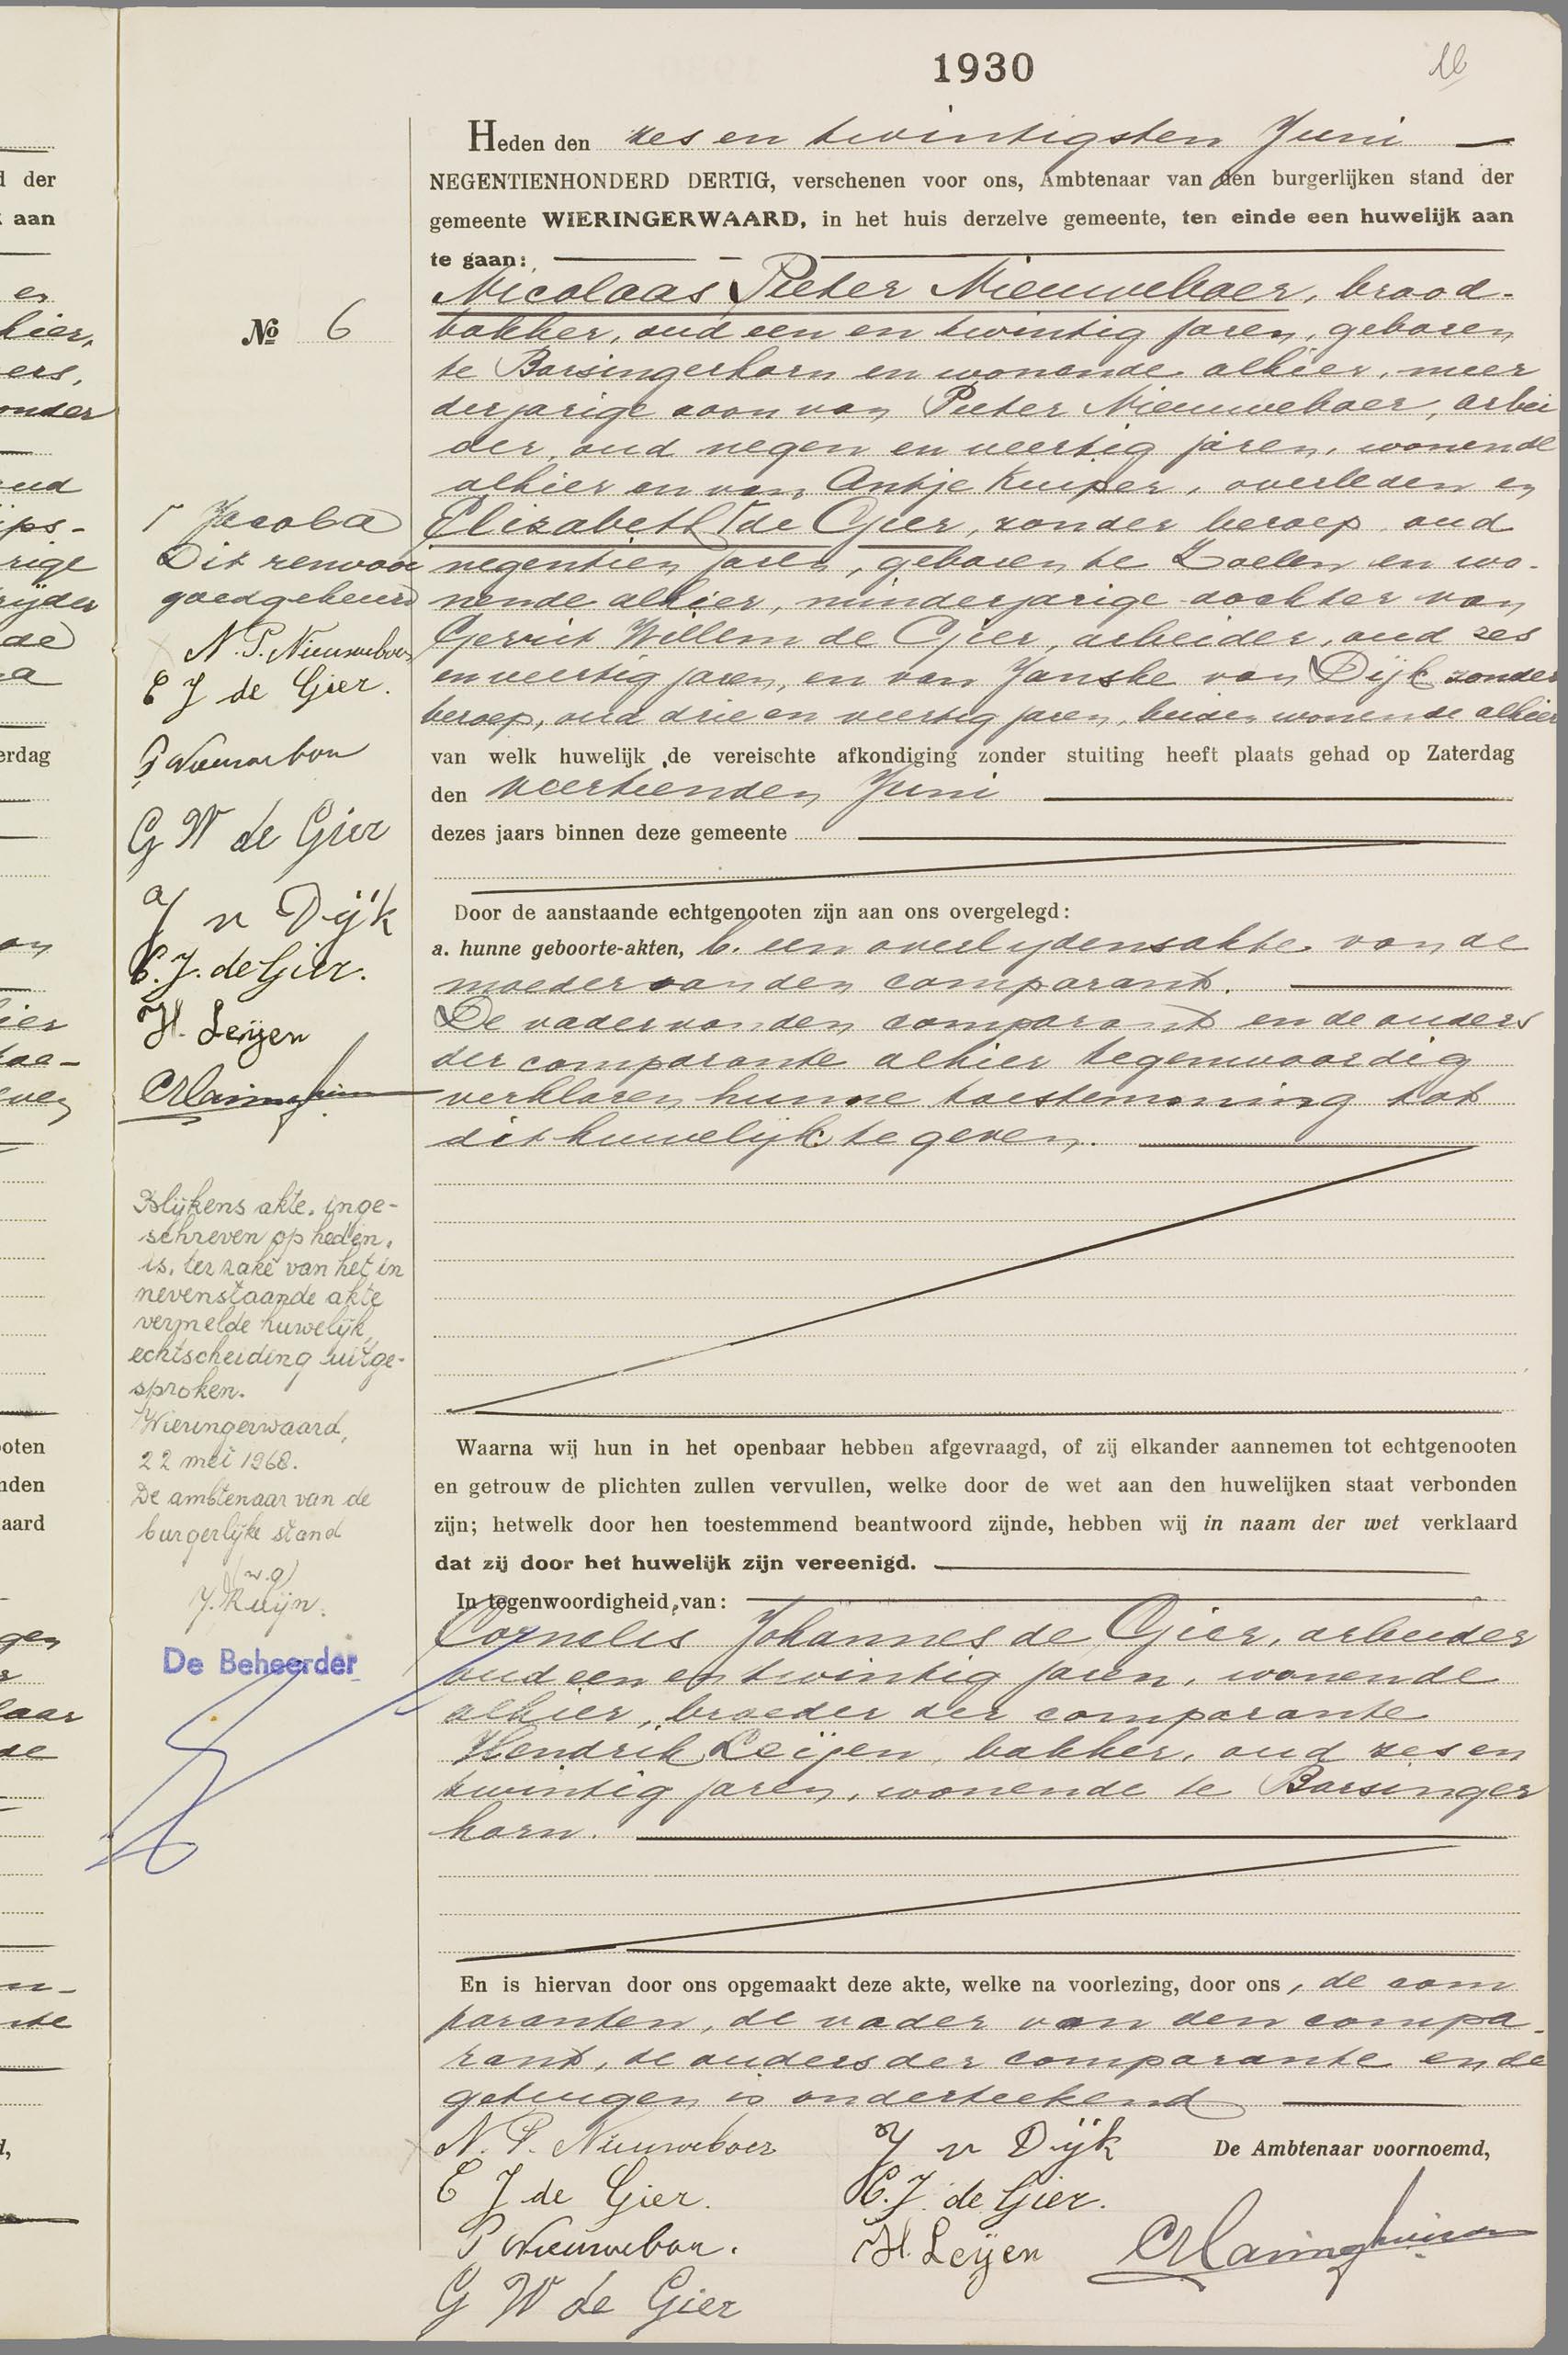 1930
16
Heden den zes en twintigsten Juni
NEGENTIENHONDERD DERTIG, verschenen voor ons, Ambtenaar van den burgerlijken stand der
gemeente WIERINGERWAARD, in het huis derzelve gemeente, ten einde een huwelijk aan
te gaan:
Nicolaas Pieter Nieuweboer, brood-
bakker, oud een en twintig jaren, geboren
te Barsingerhorn en wonende alhier, meer
derjarige zoon van Pieter Nieuweboer, arbei
der, oud negen en veertig jaren, wonende
alhier en van Antje Kuiper, overleden en
Elizabeth ┌ de Gier, zonder beroep, oud
negentien jaren, geboren te Zoelen en wo-
nende alhier, minderjarige dochter van
Gerrit Willem de Gier, arbeider, oud zes
en veertig jaren, en van Janske van Dijk zonder
beroep, oud drie en veertig jaren, beiden wonende alhier
van welk huwelijk de vereischte afkondiging zonder stuiting heeft plaats gehad op Zaterdag
den veertienden Juni
dezes jaars binnen deze gemeente
Door de aanstaande echtgenooten zijn aan ons overgelegd:
a. hunne geboorte-akten, b. een overlijdensakte van de
moeder van den comparant.
De vader van den comparant en de ouders
der comparante alhier tegenwoordig
verklaren hunne toestemming tot
dit huwelijk te geven.
Waarna wij hun in het openbaar hebben afgevraagd, of zij elkander aannemen tot echtgenooten
en getrouw de plichten zullen vervullen, welke door de wet aan den huwelijken staat verbonden
zijn; hetwelk door hen toestemmend beantwoord zijnde, hebben wij in naam der wet verklaard
dat zij door het huwelijk zijn vereenigd.
In tegenwoordigheid van:
Cornelis Johannes de Gier, arbeider
oud een en twintig jaren, wonende
alhier, broeder der comparante
Hendrik Leijen, bakker, oud zes en
twintig jaren, wonende te Barsinger
horn.
En is hiervan door ons opgemaakt deze akte, welke na voorlezing, door ons, de com
paranten, de vader van den compa-
rant, de ouders der comparante en de
getuigen is onderteekend
N. P. Nieuweboer
E J de Gier.
P Nieuweboer.
G W de Gier
J v Dijk
C. J. de Gier.
H. Leijen
De Ambtenaar voornoemd,
No 6
┌ Jacoba
Dit renvooi
goedgekeurd
N. P. Nieuweboer
E J de Gier.
P Nieuweboer
G W de Gier
J v Dijk
C. J. de Gier.
H. Leijen
Blijkens akte, inge-
schreven op heden,
is, ter zake van het in
nevenstaande akte
vermelde huwelijk,
echtscheiding uitge-
sproken.
Wieringerwaard,
22 mei 1968.
De ambtenaar van de
burgerlijke stand
(w.g)
J. Kuijn.
De Beheerder
d der
aan
er
hier,
ers,
onder
oud
ips-
rige
rijder
de
a
erdag
ier
oten
nden
aard
gen
laar
de